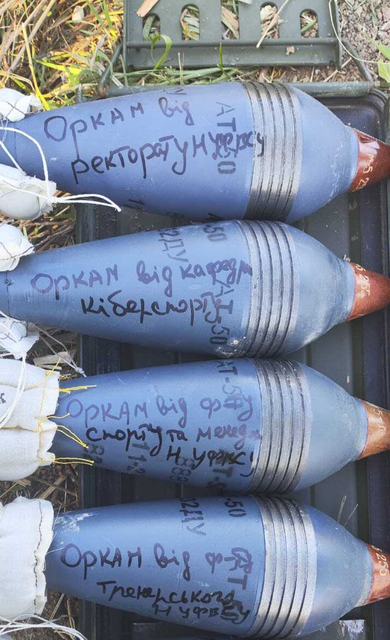 Оркам від
ректорату НУФВСУ
АТ-50
Оркам від кафедри
кіберспорту
12ДУ
АТ-50
Оркам від ф-ту
спорту та менедж
НУФВСУ
АТ-50
12ДУ
Оркам від ф-ту
Тренерського
НУФВСУ